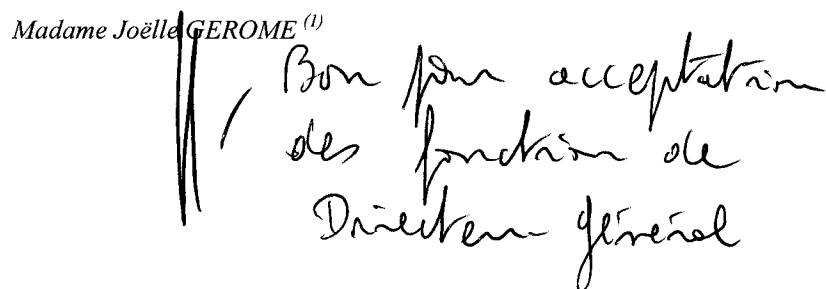 Madame Joëlle GEROME (1)
Bon pour acceptation
des fonction de
Directeur général